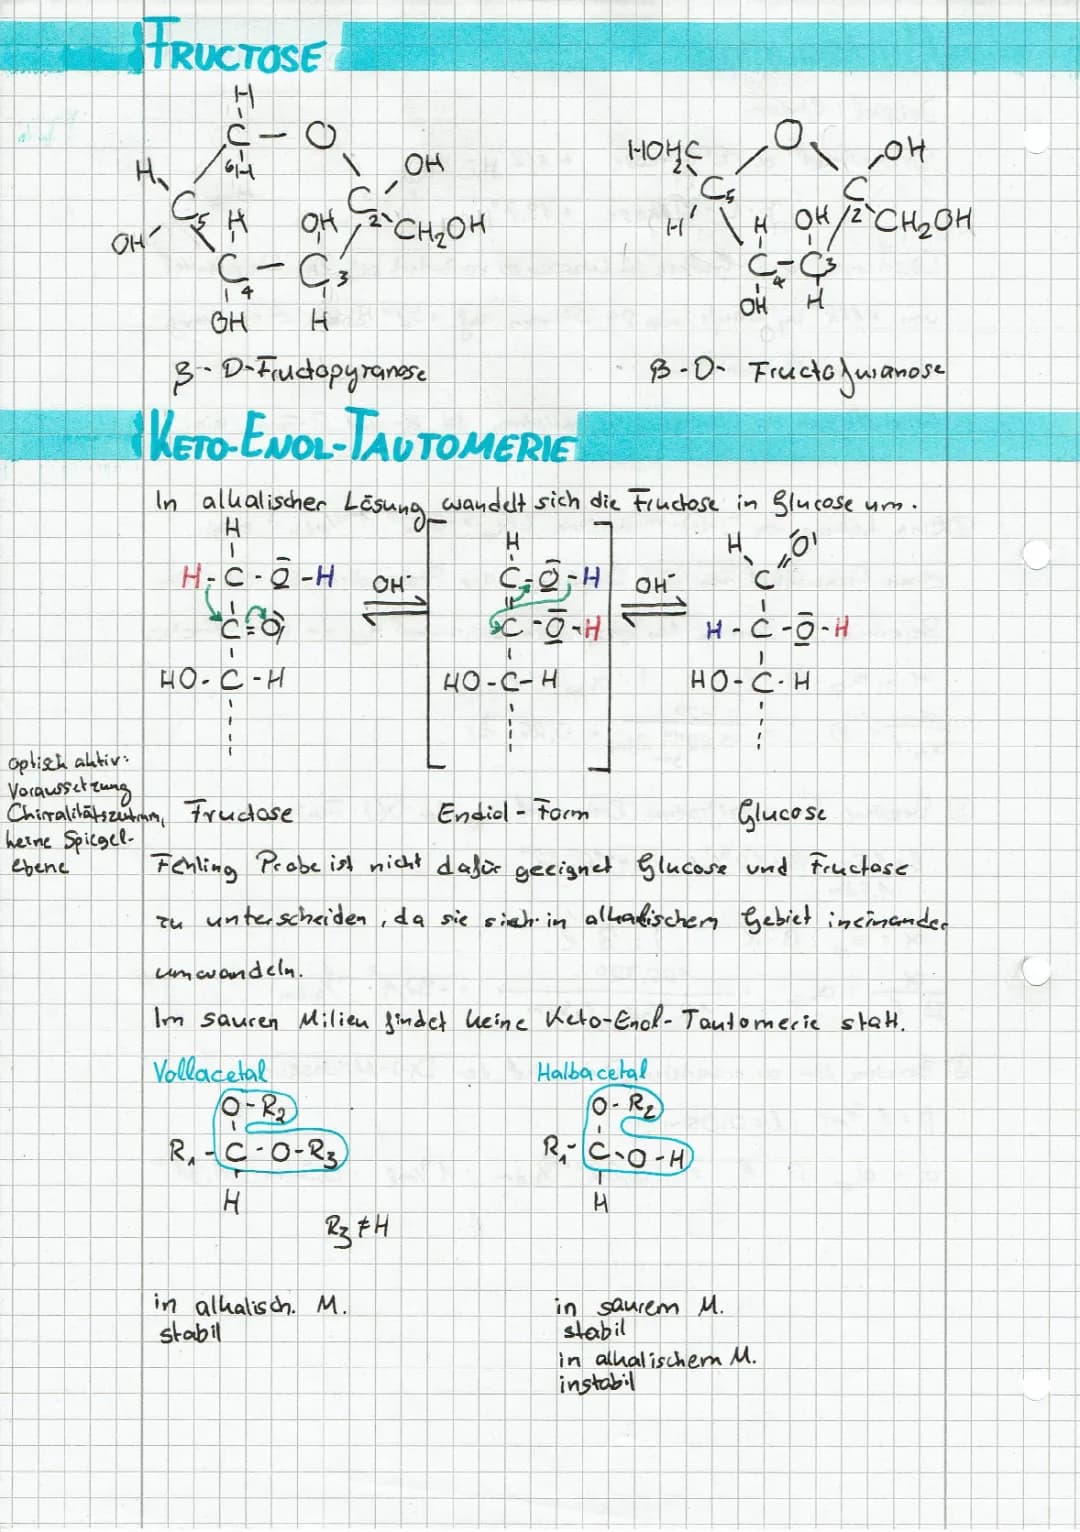 FRUCTOSE
H
C - O
6H
H
OH
C5
H
OH
C2
CH2OH
OH
C - C3
4
OH
H
β-D-Fructopyranose
HOH2C
O
OH
C5
C2
H
H
OH
CH2OH
C - C3
4
OH
H
β-D-Fructofuranose
KETO-ENOL-TAUTOMERIE
In alkalischer Lösung wandelt sich die Fructose in Glucose um.
H
H-C-O-H
C=O
HO-C-H
OH⁻
H
C-O-H
C-O-H
HO-C-H
OH⁻
H
O
C
H-C-O-H
HO-C-H
optisch aktiv:
Voraussetzung
Chiralitätszentrum,
keine Spiegel-
ebene
Fructose
Endiol-Form
Glucose
Fehling Probe ist nicht dafür geeignet Glucose und Fructose
zu unterscheiden, da sie sich in alkalischem Gebiet ineinander
umwandeln.
Im sauren Milieu findet keine Keto-Enol-Tautomerie statt.
Vollacetal
O-R2
R1-C-O-R3
H
R3 ≠ H
in alkalisch. M.
stabil
Halbacetal
O-R2
R1-C-O-H
H
in saurem M.
stabil
in alkalischem M.
instabil